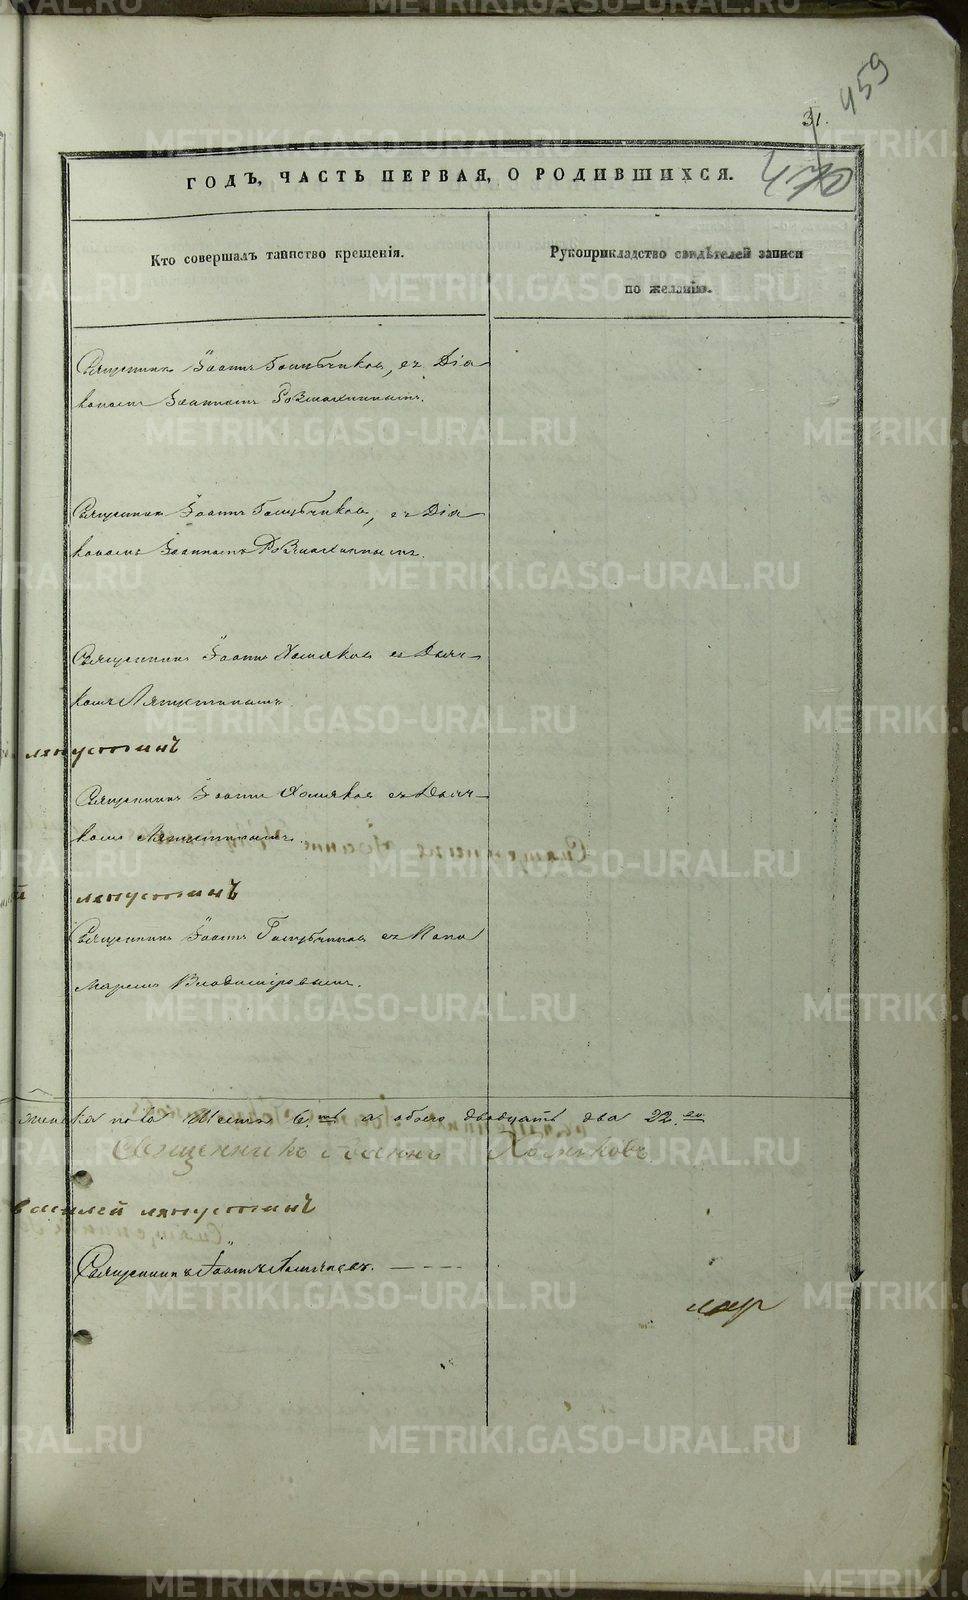 459
31.
470
ГОДЪ, ЧАСТЬ ПЕРВАЯ, О РОДИВШИХСЯ.
Кто совершалъ таинство крещенія.
Рукоприкладство свидѣтелей записи
по желанію.
Священникъ Іоаннъ Голубчиковъ, съ Діа-
кономъ Іоанномъ
Священникъ Іоаннъ Голубчиковъ, съ Діа-
кономъ Іоанномъ
Священникъ Іоаннъ Хомяковъ съ Дьяч-
комъ Ляпустинымъ.
ляпустинъ
Священникъ Іоаннъ Хомяковъ съ Дьяч-
комъ Ляпустинымъ.
й ляпустинъ
Священникъ Іоаннъ Голубчиковъ съ Поно
маремъ Владиміровымъ.
женска пола Шесть 6ть а обоего двадцать два 22.
Священникъ Іоаннъ Хомяковъ
василей ляпустинъ
Священникъ Іоаннъ
METRIKI.GASO-URAL.RU